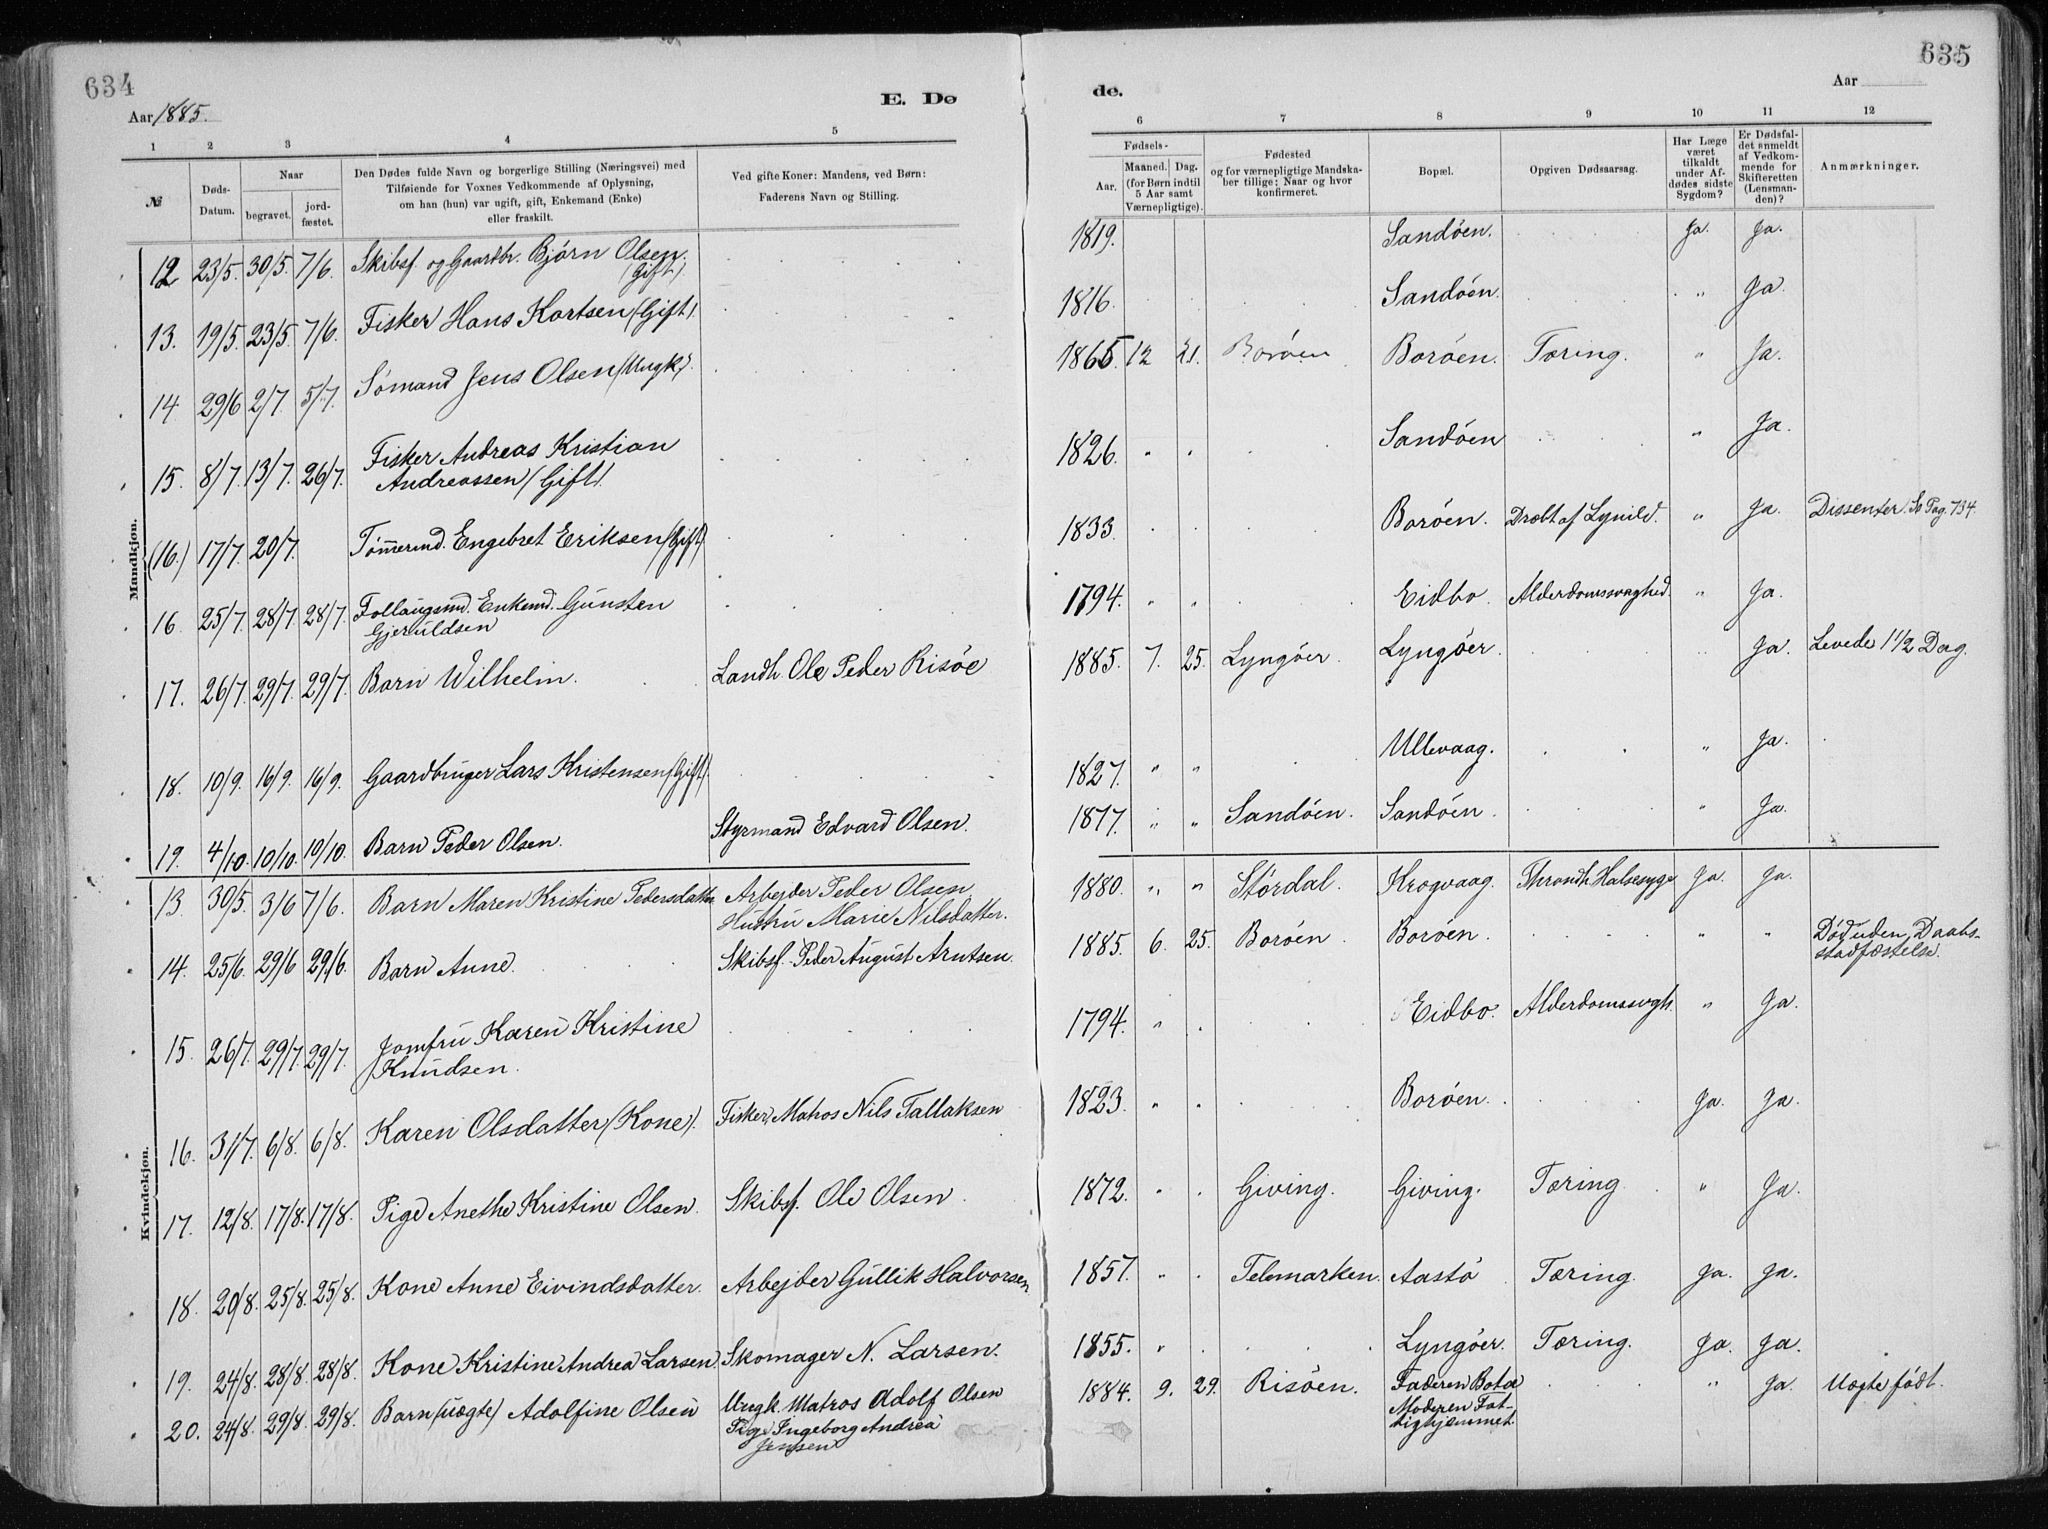 634
Aar 1885.
E. Dø
1 2 3 4 5
№ Døds-Datum. Naar begravet. jord-fæstet. Den Dødes fulde Navn og borgerlige Stilling (Næringsvei) med Tilføiende for Voxnes Vedkommende af Oplysning, om han (hun) var ugift, gift, Enkemand (Enke) eller fraskilt. Ved gifte Koner: Mandens, ved Børn: Faderens Navn og Stilling.
Mandkjøn.
12 23/5. 30/5. 7/6. Skibsf. og Gaardbr. Bjørn Olsen.
(Gift).
13. 19/5. 23/5. 7/6. Fisker Hans Kortsen (Gift).
14 29/6 2/7. 5/7. Sømand Jens Olsen (Ungk).
15. 8/7. 13/7. 26/7. Fisker Andreas Kristian
Andreassen (Gift).
(16.) 17/7. 20/7. Tømmermd. Engebret Eriksen (Gift)
16. 25/7. 28/7. 28/7. Follaugsmd. Enkemd. Gunsten
Gjeruldsen
17. 26/7. 29/7. 29/7. Barn Wilhelm. Landh. Ole Peder Risøe
18. 10/9. 16/9. 16/9. Gaardbruger Lars Kristensen (Gift).
19. 4/10. 10/10. 10/10. Barn Peder Olsen. Styrmand Edvard Olsen.
Kvindekjøn.
13. 30/5. 3/6 7/6. Barn Maren Kristine Pedersdatter Arbejder Peder Olsen
Hustru Marie Nilsdatter.
14. 25/6. 29/6 29/6. Barn Anne. Skibsf. Peder August Arntsen.
15. 26/7. 29/7. 29/7. Jomfru Karen Kristine
Knudsen.
16. 31/7. 6/8. 6/8. Karen Olsdatter (Kone). Fisker, Matros Nils Tallaksen
17. 12/8. 17/8. 17/8. Pige Anethe Kristine Olsen. Skibsf. Ole Olsen.
18. 20/8. 25/8. 25/8. Kone Anne Eivindsdatter. Arbejder Gullik Halvorsen
19. 24/8. 28/8. 28/8. Kone Kristine Andrea Larsen Skomager N. Larsen.
20. 24/8. 29/8. 29/8. Barn (uægte) Adolfine Olsen Ungk. Matros Adolf Olsen
Pige Ingeborg Andrea
Jensen
635
de.
Aar
6 7 8 9 10 11 12
Fødsels- Aar. Maaned. Dag. (for Børn indtil 5 Aar samt Værnepligtige). Fødested og for værnepligtige Mandskaber tillige: Naar og hvor konfirmeret. Bopæl. Opgiven Dødsaarsag. Har Læge været tilkaldt under Afdødes sidste Sygdom? Er Dødsfaldet anmeldt af Vedkommende for Skifteretten (Lensmanden)? Anmærkninger.
1819. Sandøen. Ja. Ja.
1816. Sandøen. " Ja
1865 12 21. Borøen Borøen. Tæring. " Ja.
1826. " " Sandøen " Ja.
1833. Borøen. Dræbt af Lynild. " Ja. Dissenter. Se Pag. 734.
1794. " " Eidbo. Alderdomssvaghed. " Ja.
1885. 7. 25. Lyngøer. Lyngøer. " Ja. Levede 1 1/2 Dag.
1827. " " Ullevaag. " Ja.
1877. " " Sandøen. Sandøen. " Ja.
1880. " " Størdal. Krogvaag. Throndh. Halsesyge Ja. Ja.
1885. 6. 25. Borøen. Borøen. " " Død uden Daabs-
stadfæstelse.
1794. " Eidbo. Alderdomssvgh. " Ja.
1823. " " Borøen. Ja. Ja.
1872. " Giving. Giving. Tæring. " Ja.
1857. " Telemarken. Aastø Tæring. Ja. Ja.
1855. " Lyngøer. Tæring. Ja. Ja.
1884. 9. 29. Risøen. Faderen Bota
Moderen Fat-
tighjemmet. " Ja. Uægte født.